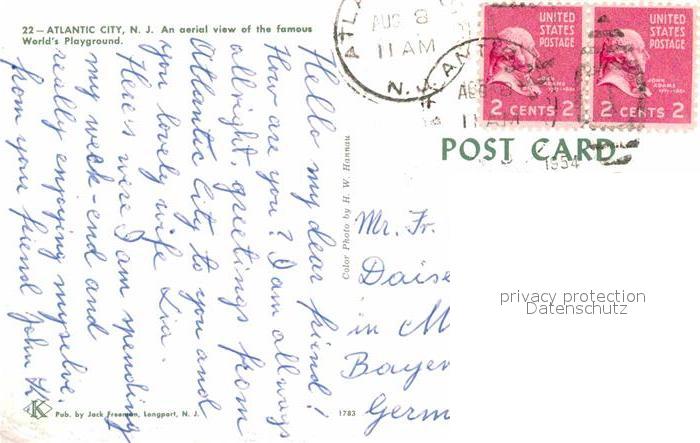 22—ATLANTIC CITY, N. J. An aerial view of the famous
World's Playground.
Hello my dear friend!
How are you? I am allways
allright, greetings from
Atlantic City to you and
you lovely wife Lia.
Here's were I am spending
my week-end and
really enjoying myselve.
from you friend John K.
K
Pub. by Jack Freeman, Longport, N. J.
Color Photo by H. W. Hannau
1783
AUG 8
11 AM
N.J.
ATLANTIC
AUG 8
11 AM
1954
UNITED
STATES
POSTAGE
JOHN
ADAMS
2 CENTS 2
UNITED
STATES
POSTAGE
JOHN
ADAMS
2 CENTS 2
POST CARD
Mr. Fr.
Daise
in M
Bayer
Germ
privacy protection
Datenschutz